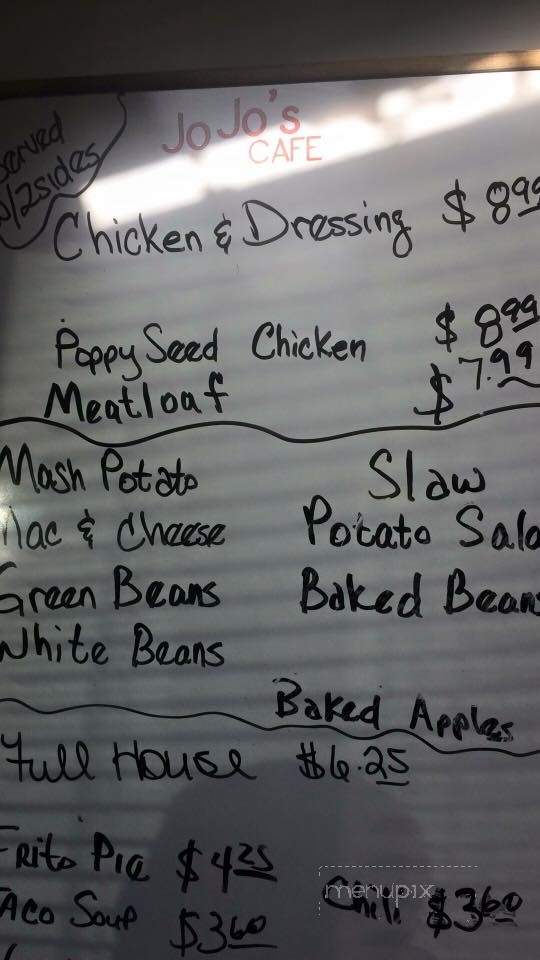 JoJo's
CAFE
served
w/2sides
Chicken & Dressing $8.99
Poppy Seed Chicken $8.99
Meatloaf $7.99
Mash Potato Slaw
Mac & Cheese Potato Sala
Green Beans Baked Beans
White Beans
Baked Apples
Full House $6.25
Frito Pie $4.25
Taco Soup $3.60 Chili $3.60
menupix